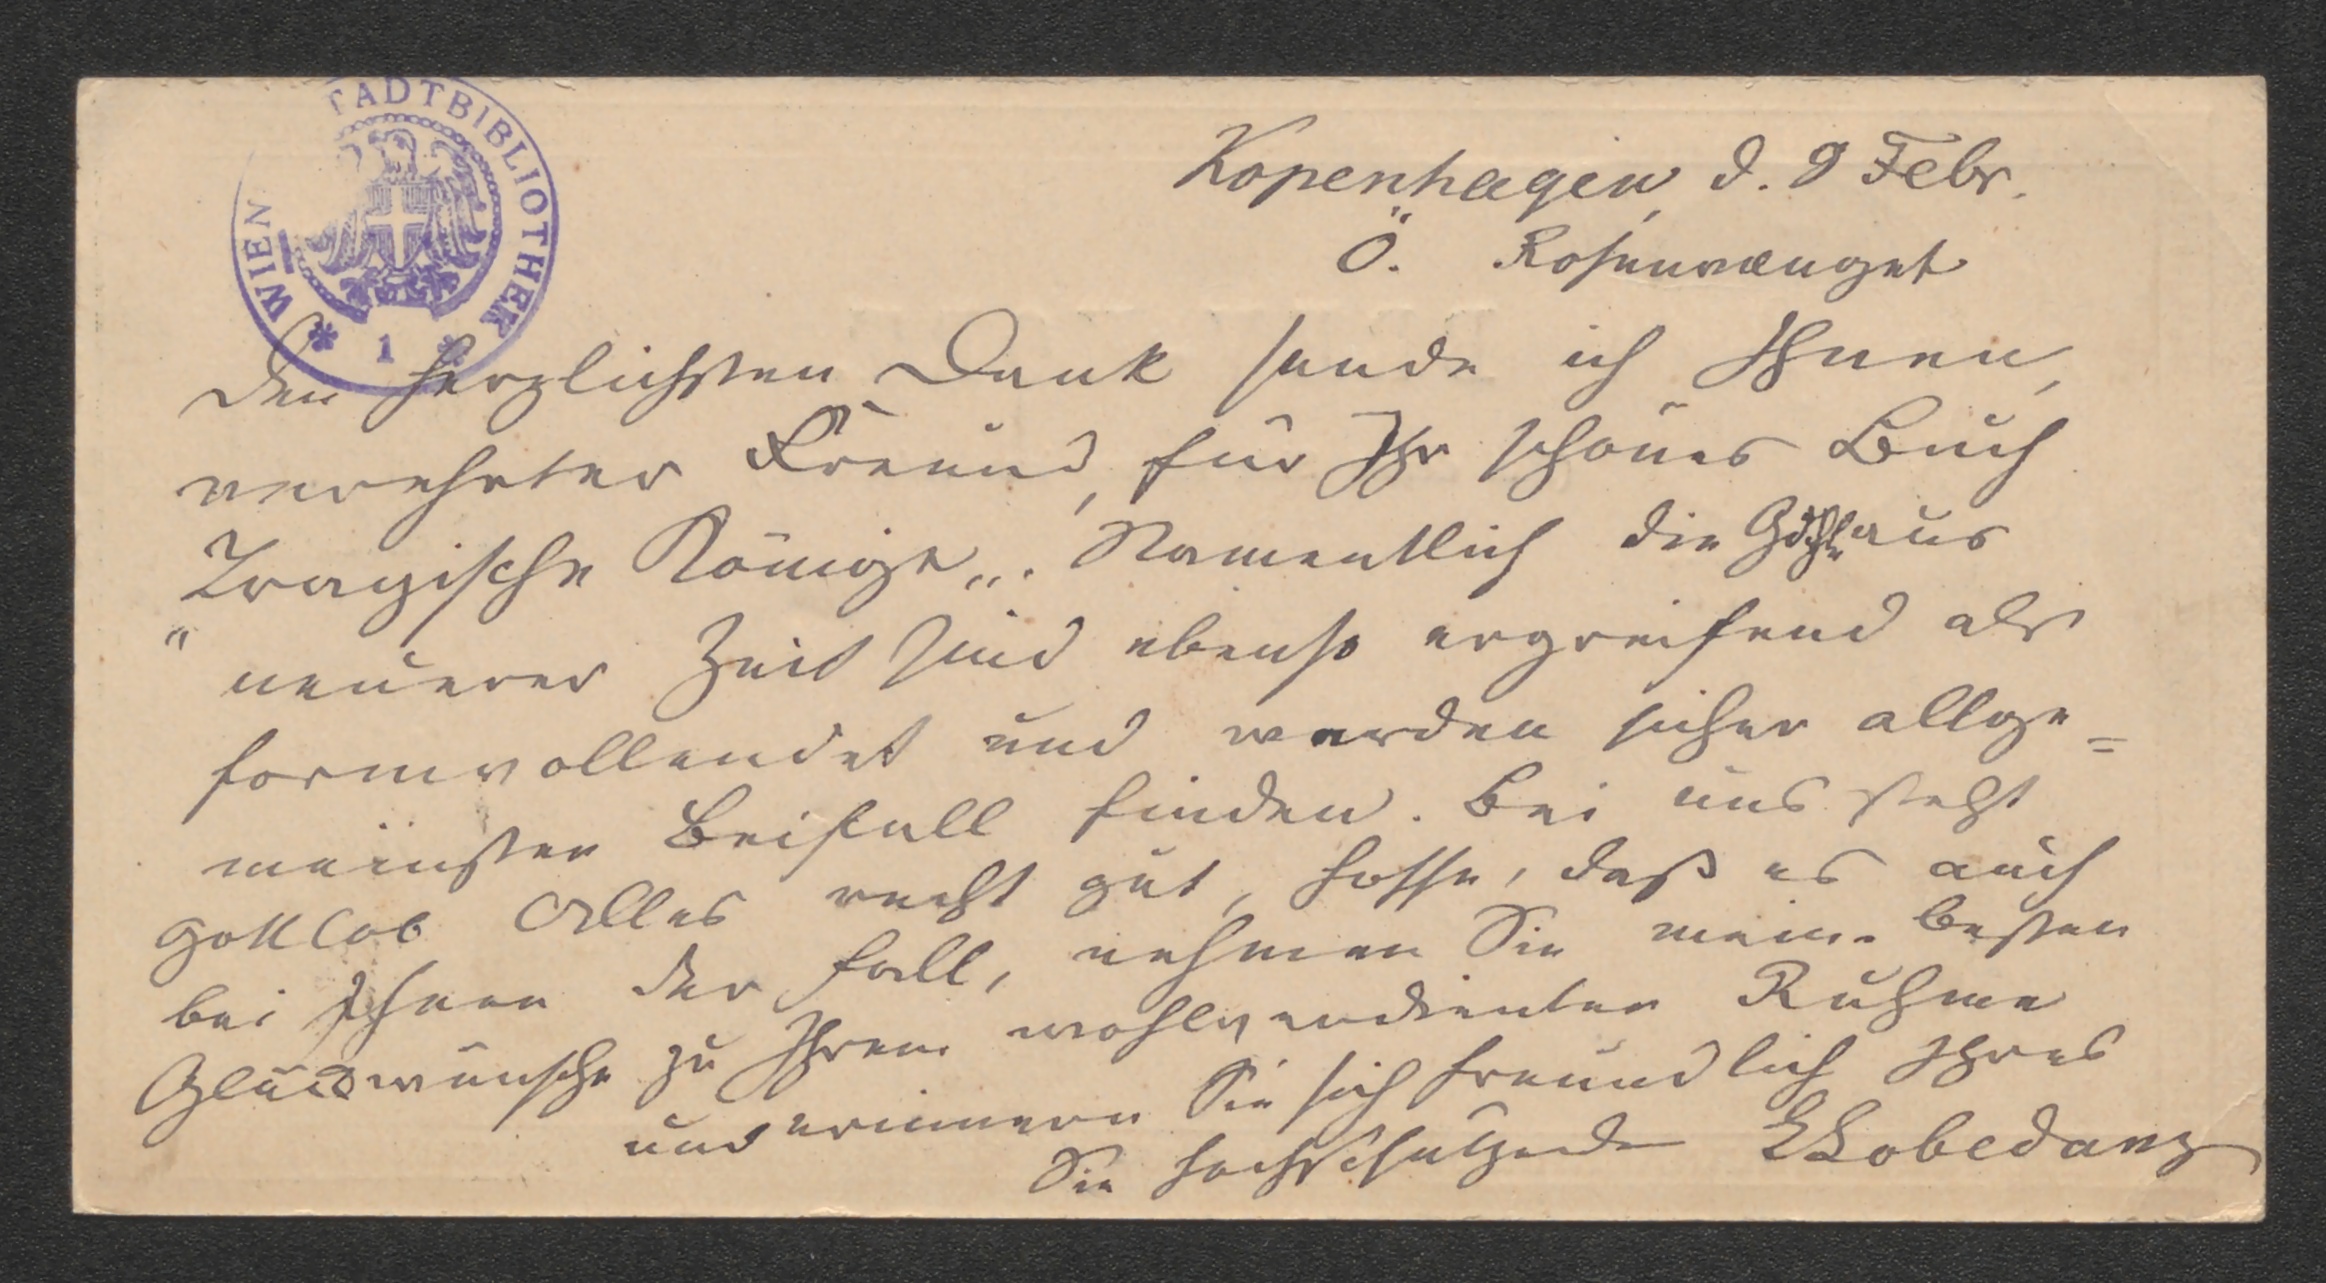 WIEN STADTBIBLIOTHEK
* 1 *
Kopenhagen, d. 9 Febr.
Ö. Rosenvænget
Den herzlichsten Dank sende ich Ihnen,
verehrter Freund, für Ihr schönes Buch
"Tragische Könige". Namentlich die aus
neuerer Zeit sind ebenso ergreifend als
formvollendet und werden sicher allge=
meinsten Beifall finden. Bei uns steht
gottlob Alles recht gut, hoffe, daß es auch
bei Ihnen der Fall, nehmen Sie meine besten
Glückwünsche zu Ihrem wohlverdienten Ruhme
und erinnern Sie sich freundlich Ihres
Sie hochschätzenden ELobedanz